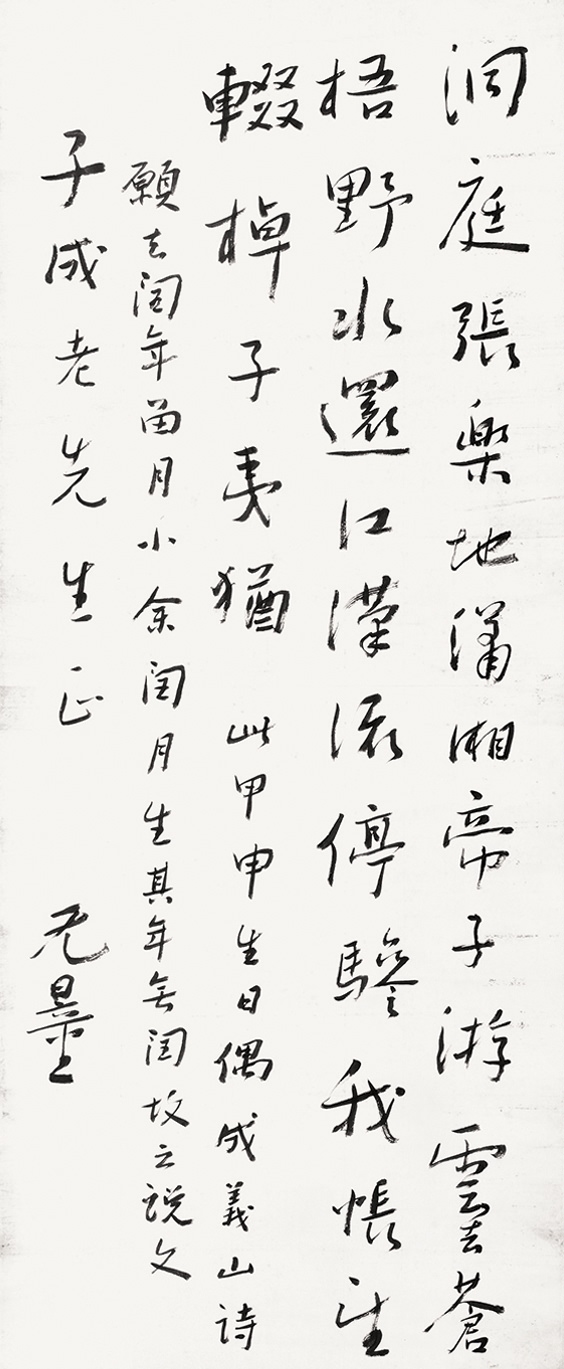 洞庭張樂地瀟湘帝子游雲去蒼
梧野水還江漢流停驂我悵望
輟棹子夷猶 此甲申生日偶成義山詩
願去閏年留月小余閏月生其年無閏故云説文
子成老先生正 无量